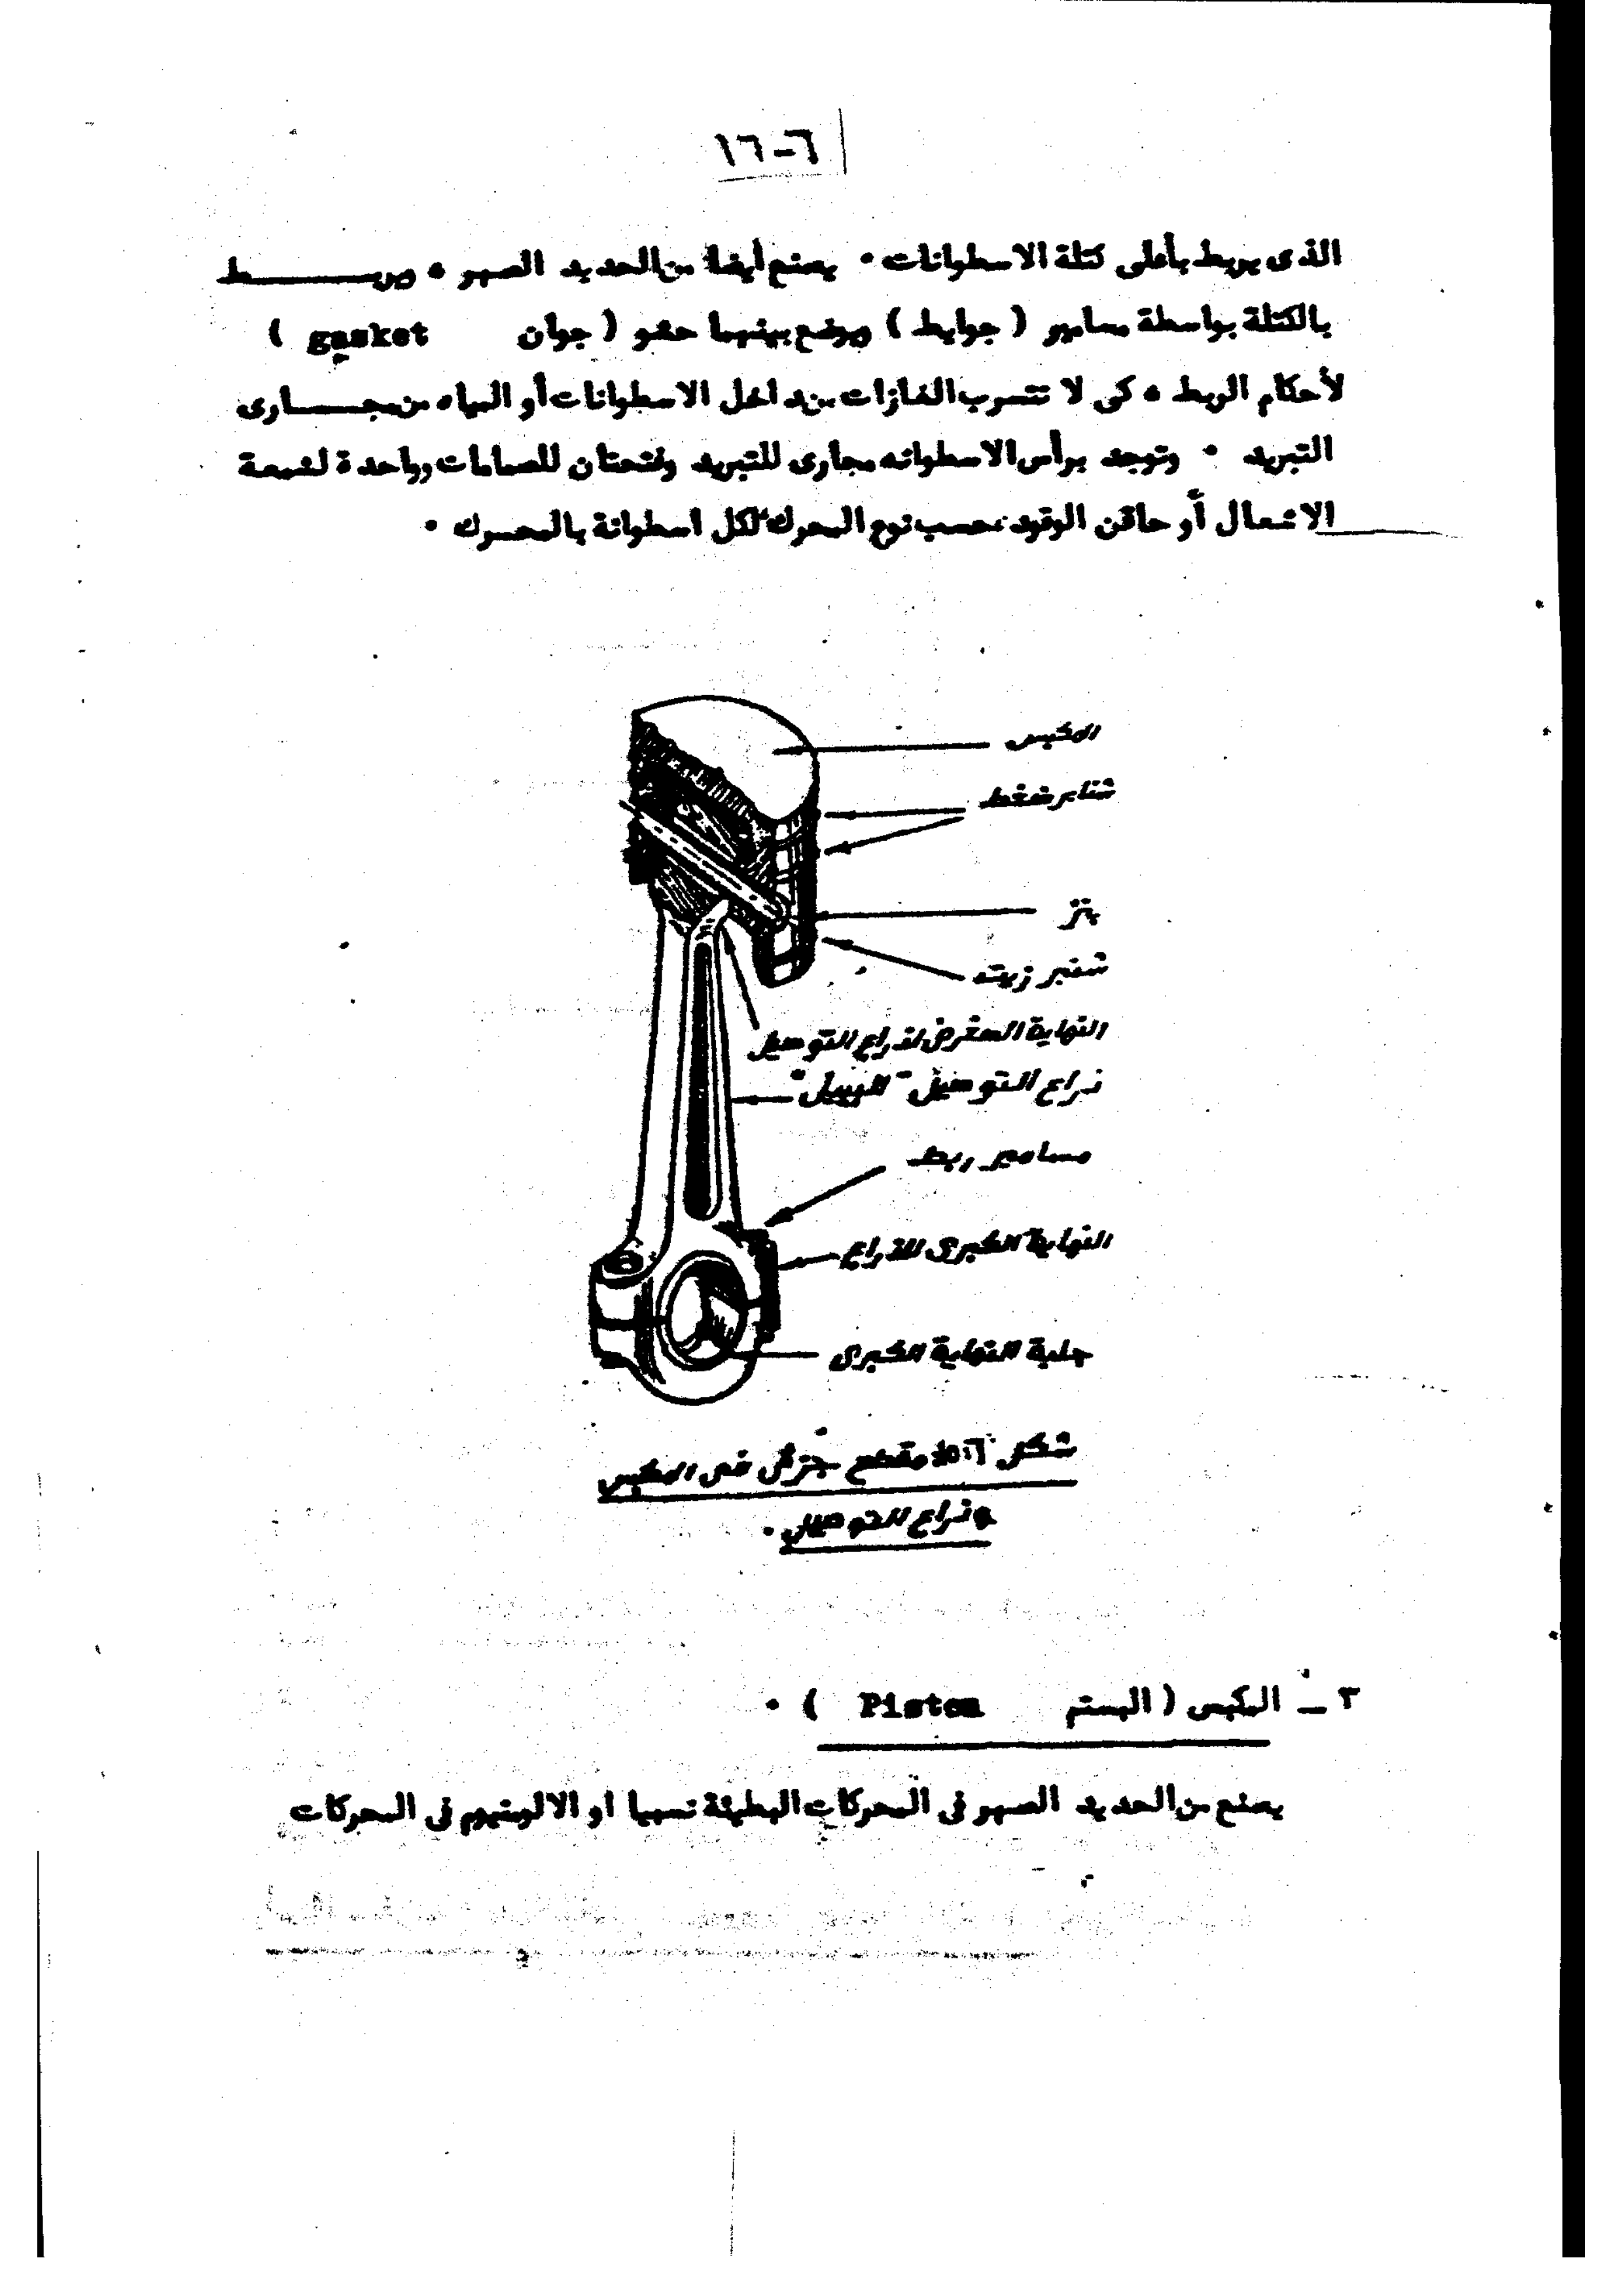 ٦-١٦
الذى يربط بأعلى كتلة الاسطوانات • يصنع أيضا من الحديد الصهر ، ويربــــــط
بالكتلة بواسطة مسامير ( جوايط ) ويوضع بينهما حشو ( جوان gasket )
لأحكام الربط ، كى لا تتسرب الغازات من داخل الاسطوانات أو المياه من مجـــارى
التبريد • وتوجد برأس الاسطوانه مجارى للتبريد وفتحتان للصمامات وواحدة لشمعة
الاشعال أو حاقن الوقود حسب نوع المحرك لكل اسطوانة بالمحرك •
المكبس
شنابر ضغط
بنز
شنبر زيت
النهاية الصغرى لذراع التوصيل
ذراع التوصيل "البييل"
مسامير ربط
النهاية الكبرى للذراع
جلبة النهاية الكبرى
شكل مقطع جزئى فى المكبس
وذراع التوصيل •
٣ ــ المكبس ( البستم Piston ) •
يصنع من الحديد الصهر فى المحركات البطيئة نسبيا او الالومنيوم فى المحركات